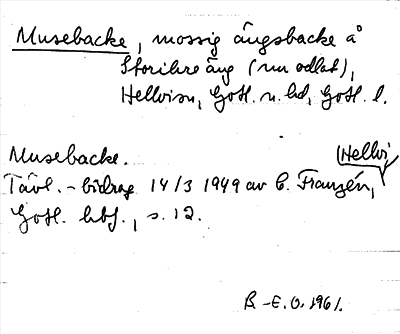 Musebacke, mossig ängsbacke å
Storihre äng (nu odlat),
Hellvi sn, Gotl. n. hd, Gotl. l.
Musebacke. (Hellvi)
Tävl.-bidrag 14/3 1949 av C. Franzén,
Gotl. hbf., s. 12.
B-E.O. 1961.